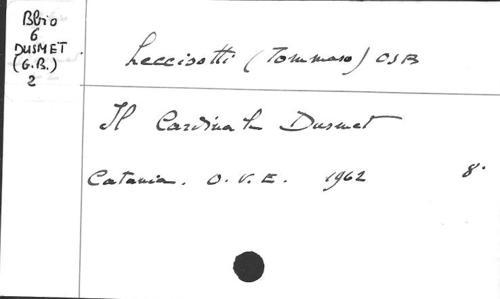 Bbio
6
DUSMET
(G.B.)
2
Leccisotti (Tommaso) OSB
Il Cardinale Dusmet
Catania. O.V.E. 1962 8°